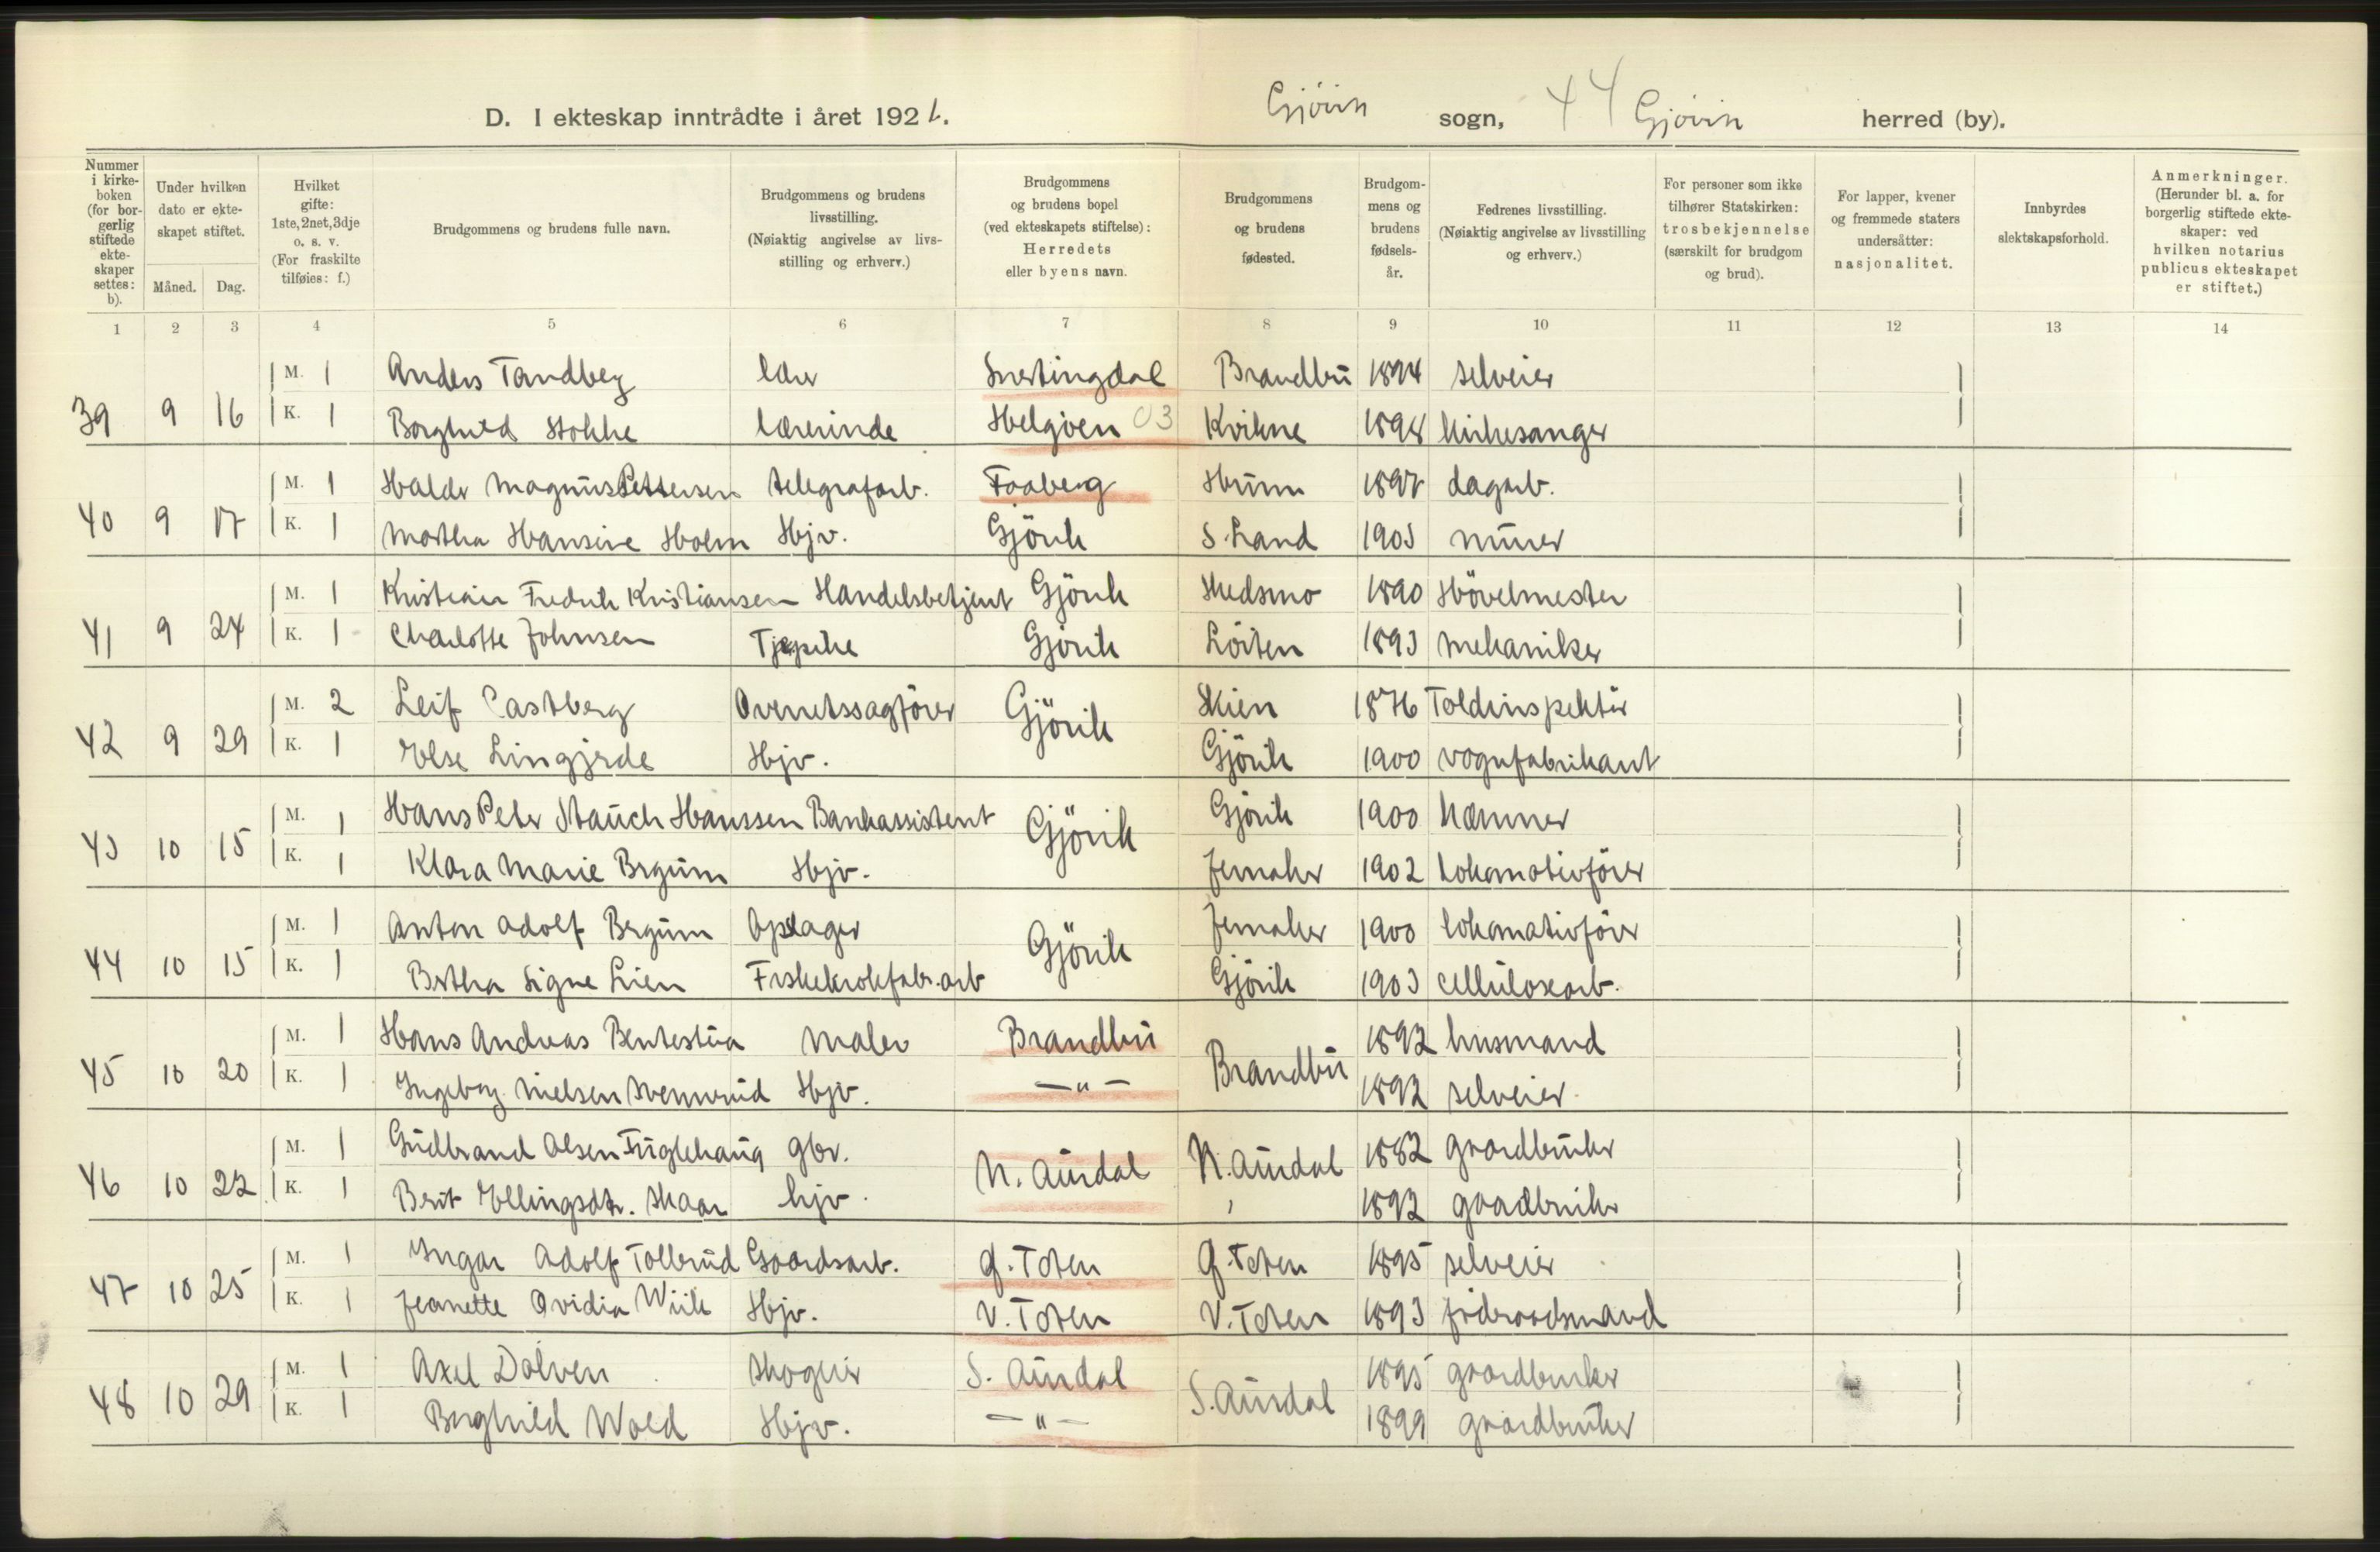 D. I ekteskap inntrådte i året 1921.
Gjövik sogn, 44 Gjövik herred (by).
Nummer i kirkeboken (for borgerlig stiftede ekteskaper settes: b).
Under hvilken dato er ekteskapet stiftet.
Måned. Dag.
Hvilket gifte: 1ste, 2net, 3dje o. s. v. (For fraskilte tilføies: f.)
Brudgommens og brudens fulle navn.
Brudgommens og brudens livsstilling. (Nøiaktig angivelse av livsstilling og erhverv.)
Brudgommens og brudens bopel (ved ekteskapets stiftelse): Herredets eller byens navn.
Brudgommens og brudens fødested.
Brudgommens og brudens fødselsår.
Fedrenes livsstilling. (Nøiaktig angivelse av livsstilling og erhverv.)
For personer som ikke tilhører Statskirken: trosbekjennelse (særskilt for brudgom og brud).
For lapper, kvener og fremmede staters undersåtter: nasjonalitet.
Innbyrdes slektskapsforhold.
Anmerkninger. (Herunder bl. a. for borgerlig stiftede ekteskaper: ved hvilken notarius publicus ekteskapet er stiftet.)
1 2 3 4 5 6 7 8 9 10 11 12 13 14
M. 1 Anders Tandberg lærer Snertingdal Brandbu 1894 selveier
39 9 16 K. 1 Borghild Stokke lærerinde Helgöen 03 Kvikne 1894 kirkesanger
M. 1 Haldr Magnus Pettersen telegrafarb. Faaberg Hunn 1897 dagarb.
40 9 17 K. 1 Martha Hansine Holm Hjv. Gjövik S. Land 1903 murer
M. 1 Kristian Fredrik Kristiansen Handelsbetjent Gjövik Skedsmo 1890 Hövelmester
41 9 24 K. 1 Charlotte Johnsen Gjövik Löiten 1893 mekaniker
M. 2 Leif Castberg Overretssagförer Gjövik Skien 1876 Toldinspektör
42 9 29 K. 1 Else Lingjerde Hjv. Gjövik 1900 vognfabrikant
M. 1 Hans Peter Stauch Hanssen Bankassistent Gjövik Gjövik 1900 kæmner
43 10 15 K. 1 Klara Marie Bergum Hjv. Jevnaker 1902 Lokomotivförer
M. 1 Anton Adolf Bergum Opslager Gjövik Jevnaker 1900 lokomotivförer
44 10 15 K. 1 Bertha Signe Lien Fiskekrokfabr.arb Gjövik 1903 cellulosearb.
M. 1 Hans Andreas Bentestua Maler Brandbu Brandbu 1892 husmand
45 10 20 K. 1 Ingeborg Nielsen Svenrud Hjv. —"— 1892 selveier
M. 1 Gudbrand Olsen Fuglehaug gbr. N. Aurdal N. Aurdal 1882 gaardbruker
46 10 22 K. 1 Berit Ellingsdtr. Skaar hjv. 1892 gaardbruker
M. 1 Ingar Adolf Tollerud Gaardsarb. Ø. Toten Ø. Toten 1895 selveier
47 10 25 K. 1 Jeanette Ovidia Wiik Hjv. V. Toten V. Toten 1893 föderaadsmand
M. 1 Axel Dölven Skogeier S. Aurdal S. Aurdal 1895 gaardbruker
48 10 29 K. 1 Borghild Wold Hjv. —"— 1899 gaardbruker